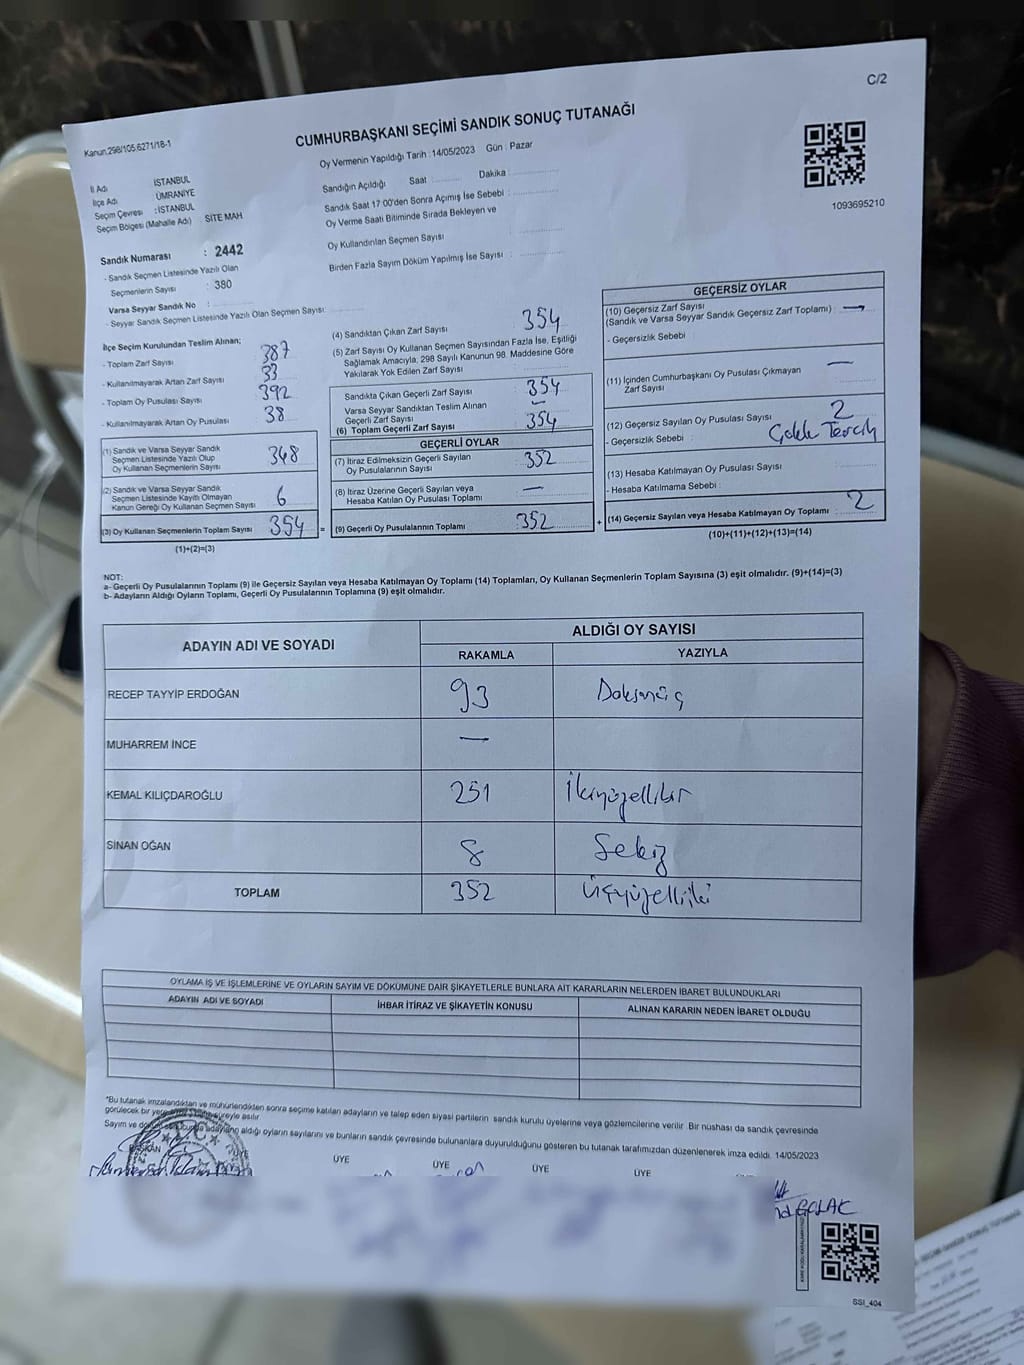 C/2
Kanun.298/105.6271/18-1
CUMHURBAŞKANI SEÇİMİ SANDIK SONUÇ TUTANAĞI
Oy Vermenin Yapıldığı Tarih :14/05/2023 Gün : Pazar
1093695210
İl Adı : İSTANBUL
İlçe Adı : ÜMRANİYE
Seçim Çevresi : İSTANBUL
Seçim Bölgesi (Mahalle Adı) : SİTE MAH
Sandık Numarası : 2442
- Sandık Seçmen Listesinde Yazılı Olan
Seçmenlerin Sayısı : 380
Varsa Seyyar Sandık No :
- Seyyar Sandık Seçmen Listesinde Yazılı Olan Seçmen Sayısı:
Sandığın Açıldığı Saat Dakika
Sandık Saat 17:00'den Sonra Açımış İse Sebebi :
Oy Verme Saati Bitiminde Sırada Bekleyen ve
Oy Kullandırılan Seçmen Sayısı :
Birden Fazla Sayım Döküm Yapılmış İse Sayısı :
İlçe Seçim Kurulundan Teslim Alınan;
- Toplam Zarf Sayısı : 387
- Kullanılmayarak Artan Zarf Sayısı : 33
- Toplam Oy Pusulası Sayısı : 392
- Kullanılmayarak Artan Oy Pusulası : 38
(1) Sandık ve Varsa Seyyar Sandık
Seçmen Listesinde Yazılı Olup
Oy Kullanan Seçmenlerin Sayısı : 348
(2) Sandık ve Varsa Seyyar Sandık
Seçmen Listesinde Kayıtlı Olmayan
Kanun Gereği Oy Kullanan Seçmen Sayısı : 6
(3) Oy Kullanan Seçmenlerin Toplam Sayısı : 354 =
(1)+(2)=(3)
(4) Sandıktan Çıkan Zarf Sayısı : 354
(5) Zarf Sayısı Oy Kullanan Seçmen Sayısından Fazla İse, Eşitliği
Sağlamak Amacıyla, 298 Sayılı Kanunun 98. Maddesine Göre
Yakılarak Yok Edilen Zarf Sayısı :
Sandıkta Çıkan Geçerli Zarf Sayısı : 354
Varsa Seyyar Sandıktan Teslim Alınan
Geçerli Zarf Sayısı : —
(6) Toplam Geçerli Zarf Sayısı : 354
GEÇERLİ OYLAR
(7) İtiraz Edilmeksizin Geçerli Sayılan
Oy Pusulalarının Sayısı : 352
(8) İtiraz Üzerine Geçerli Sayılan veya
Hesaba Katılan Oy Pusulası Toplamı : —
(9) Geçerli Oy Pusulalarının Toplamı : 352 +
GEÇERSİZ OYLAR
(10) Geçersiz Zarf Sayısı
(Sandık ve Varsa Seyyar Sandık Geçersiz Zarf Toplamı) : —
- Geçersizlik Sebebi :
(11) İçinden Cumhurbaşkanı Oy Pusulası Çıkmayan
Zarf Sayısı : —
(12) Geçersiz Sayılan Oy Pusulası Sayısı : 2
- Geçersizlik Sebebi : Tercih
(13) Hesaba Katılmayan Oy Pusulası Sayısı :
- Hesaba Katılmama Sebebi :
(14) Geçersiz Sayılan veya Hesaba Katılmayan Oy Toplamı : 2
(10)+(11)+(12)+(13)=(14)
NOT:
a- Geçerli Oy Pusulalarının Toplamı (9) ile Geçersiz Sayılan veya Hesaba Katılmayan Oy Toplamı (14) Toplamları, Oy Kullanan Seçmenlerin Toplam Sayısına (3) eşit olmalıdır. (9)+(14)=(3)
b- Adayların Aldığı Oyların Toplamı, Geçerli Oy Pusulalarının Toplamına (9) eşit olmalıdır.
ADAYIN ADI VE SOYADI ALDIĞI OY SAYISI
RAKAMLA YAZIYLA
RECEP TAYYİP ERDOĞAN 93 Doksanüç
MUHARREM İNCE —
KEMAL KILIÇDAROĞLU 251 İkiyüzellibir
SİNAN OĞAN 8 Sekiz
TOPLAM 352 Üçyüzelliiki
OYLAMA İŞ VE İŞLEMLERİNE VE OYLARIN SAYIM VE DÖKÜMÜNE DAİR ŞİKAYETLERLE BUNLARA AİT KARARLARIN NELERDEN İBARET BULUNDUKLARI
ADAYIN ADI VE SOYADI İHBAR İTİRAZ VE ŞİKAYETİN KONUSU ALINAN KARARIN NEDEN İBARET OLDUĞU
*Bu tutanak imzalandıktan ve mühürlendikten sonra seçime katılan adayların ve talep eden siyasi partilerin sandık kurulu üyelerine veya gözlemcilerine verilir. Bir nüshası da sandık çevresinde
görülecek bir yere süreyle asılır.
Sayım ve aldığı oyların sayılarını ve bunların sandık çevresinde bulunanlara duyurulduğunu gösteren bu tutanak tarafımızdan düzenlenerek imza edildi. 14/05/2023
BAŞKAN ÜYE ÜYE ÜYE ÜYE
SSİ_404